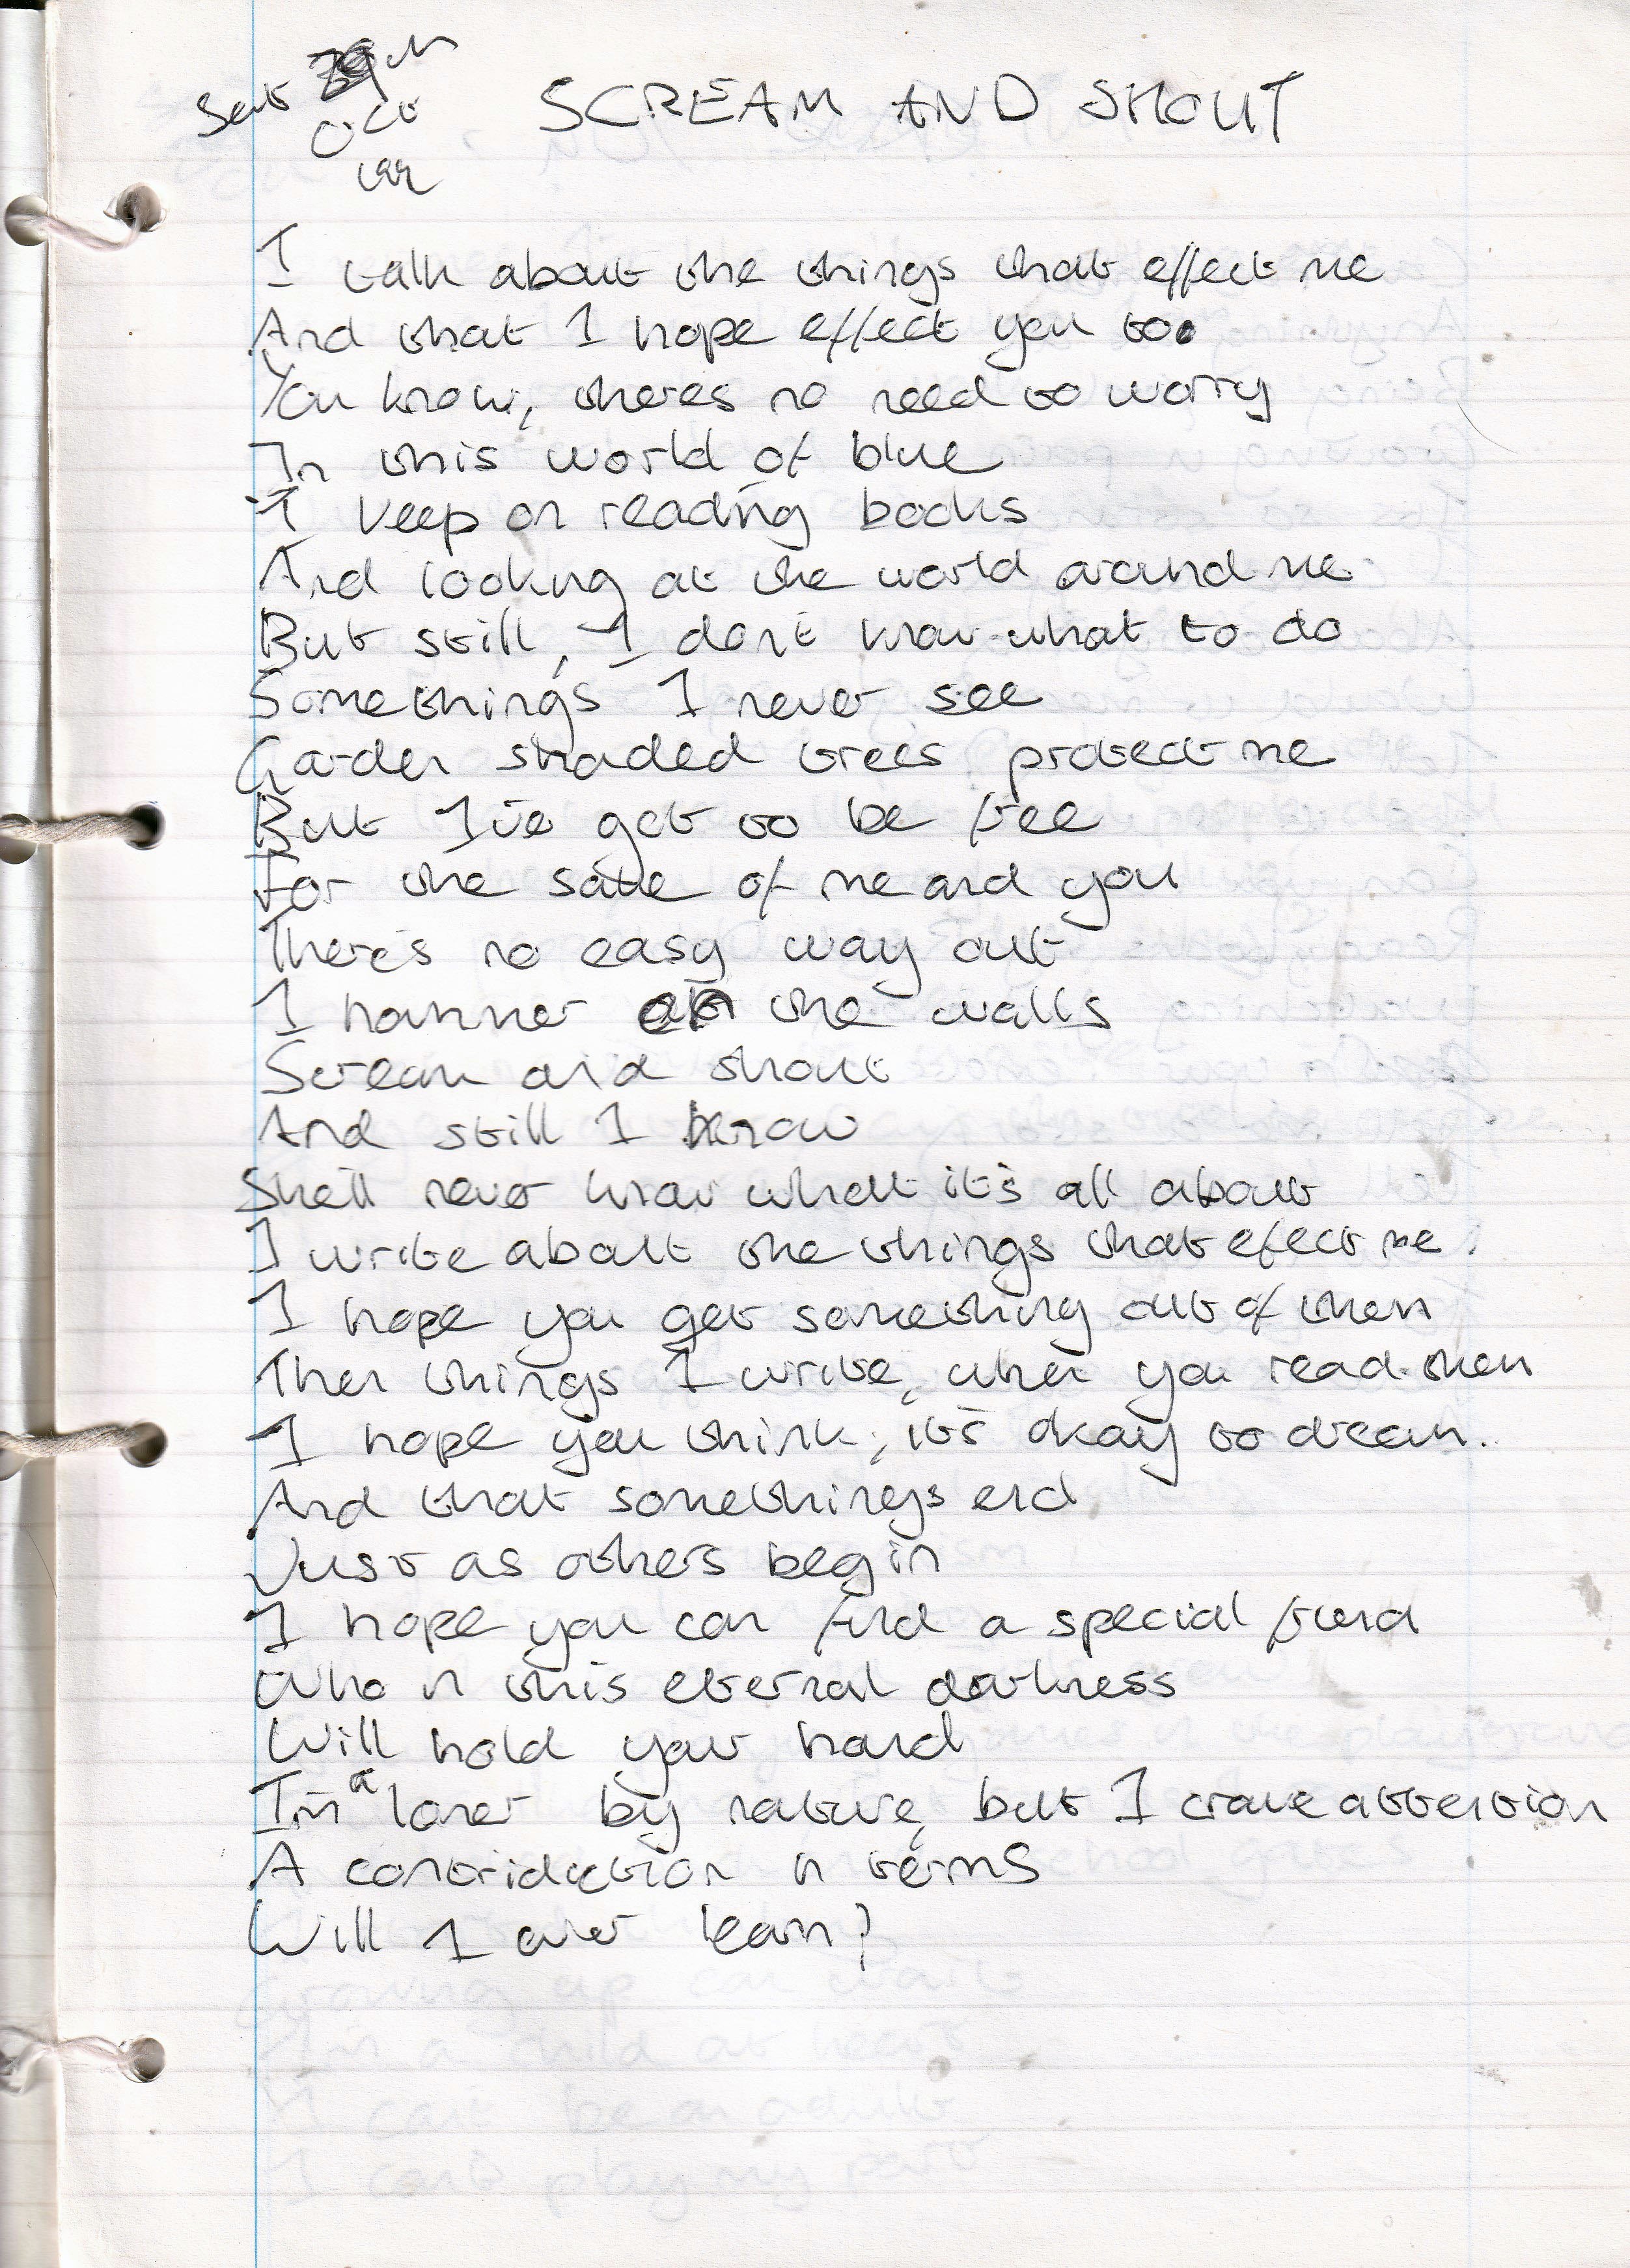 Sat 29th
Oct
SCREAM AND SHOUT
I talk about the things that effect me
And that I hope effect you too
You know, theres no need to worry
In this world of blue
I keep on reading books
And looking at the world around me
But still, I don't know what to do
Somethings I never see
Garden shaded trees protect me
But I've got to be free
For the sake of me and you
There's no easy way out
I hammer at the walls
Scream and shout
And still I know
She'll never know what it's all about
I write about the things that efect me.
I hope you get something out of them
Them things I write, when you read them
I hope you think, it's okay to dream.
And that somethings end
Just as others begin
I hope you can find a special friend
Who in this eternal darkness
Will hold your hand
I'm a loner by nature, but I crave attention
A contridiction in terms
Will I ever learn?